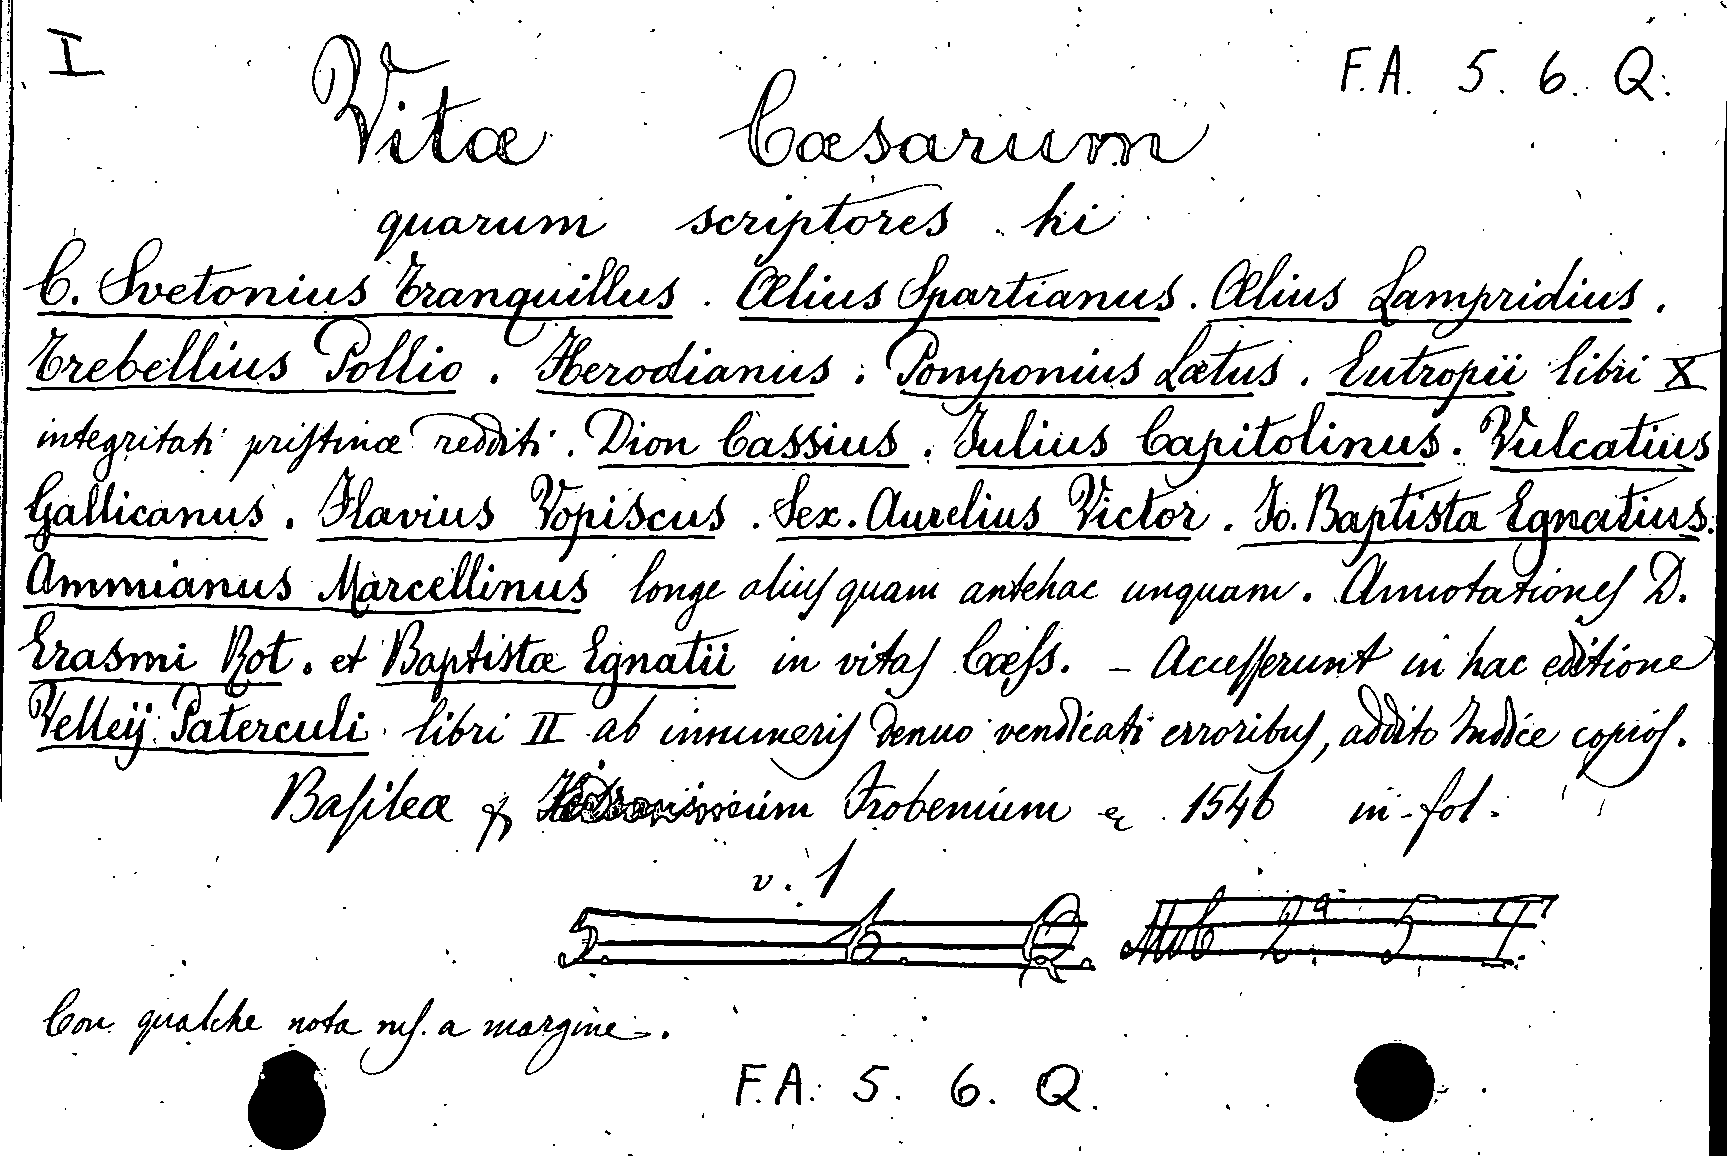 I
F.A. 5. 6. Q.
Vitæ Cæsarum
quarum scriptores hi
C. Svetonius Tranquillus. Ælius Spartianus. Ælius Lampridius.
Trebellius Pollio. Herodianus. Pomponius Lætus. Eutropii libri X
integritati pristinæ redditi. Dion Cassius. Julius Capitolinus. Vulcatius
Gallicanus. Flavius Vopiscus. Sex. Aurelius Victor. Jo. Baptista Egnatius.
Ammianus Marcellinus longe alius quam antehac unquam. Annotationes D.
Erasmi Rot. et Baptistæ Egnatii in vitas Cæss. – Accesserunt in hac editione
Velleij Paterculi libri II ab innumeris denuo vendicati erroribus, addito Indice copios.
Basileæ Frobenium 1546 in-fol.
v. 1
5. 6. Q. Mob 2ª 5 T.
Con qualche nota ms. a margine.
F.A. 5. 6. Q.